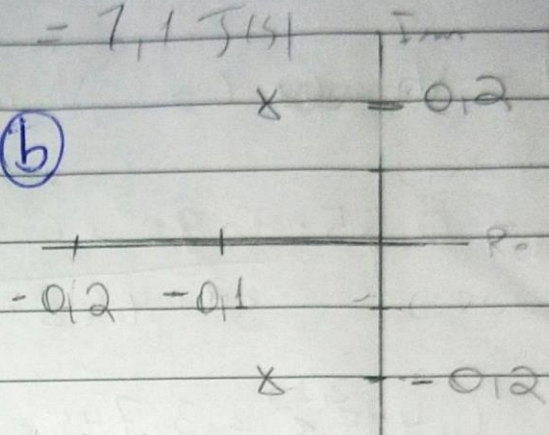 = 7,1 J(s) Im
x 0,2
b
Re
-0,2 -0,1
x -0,2